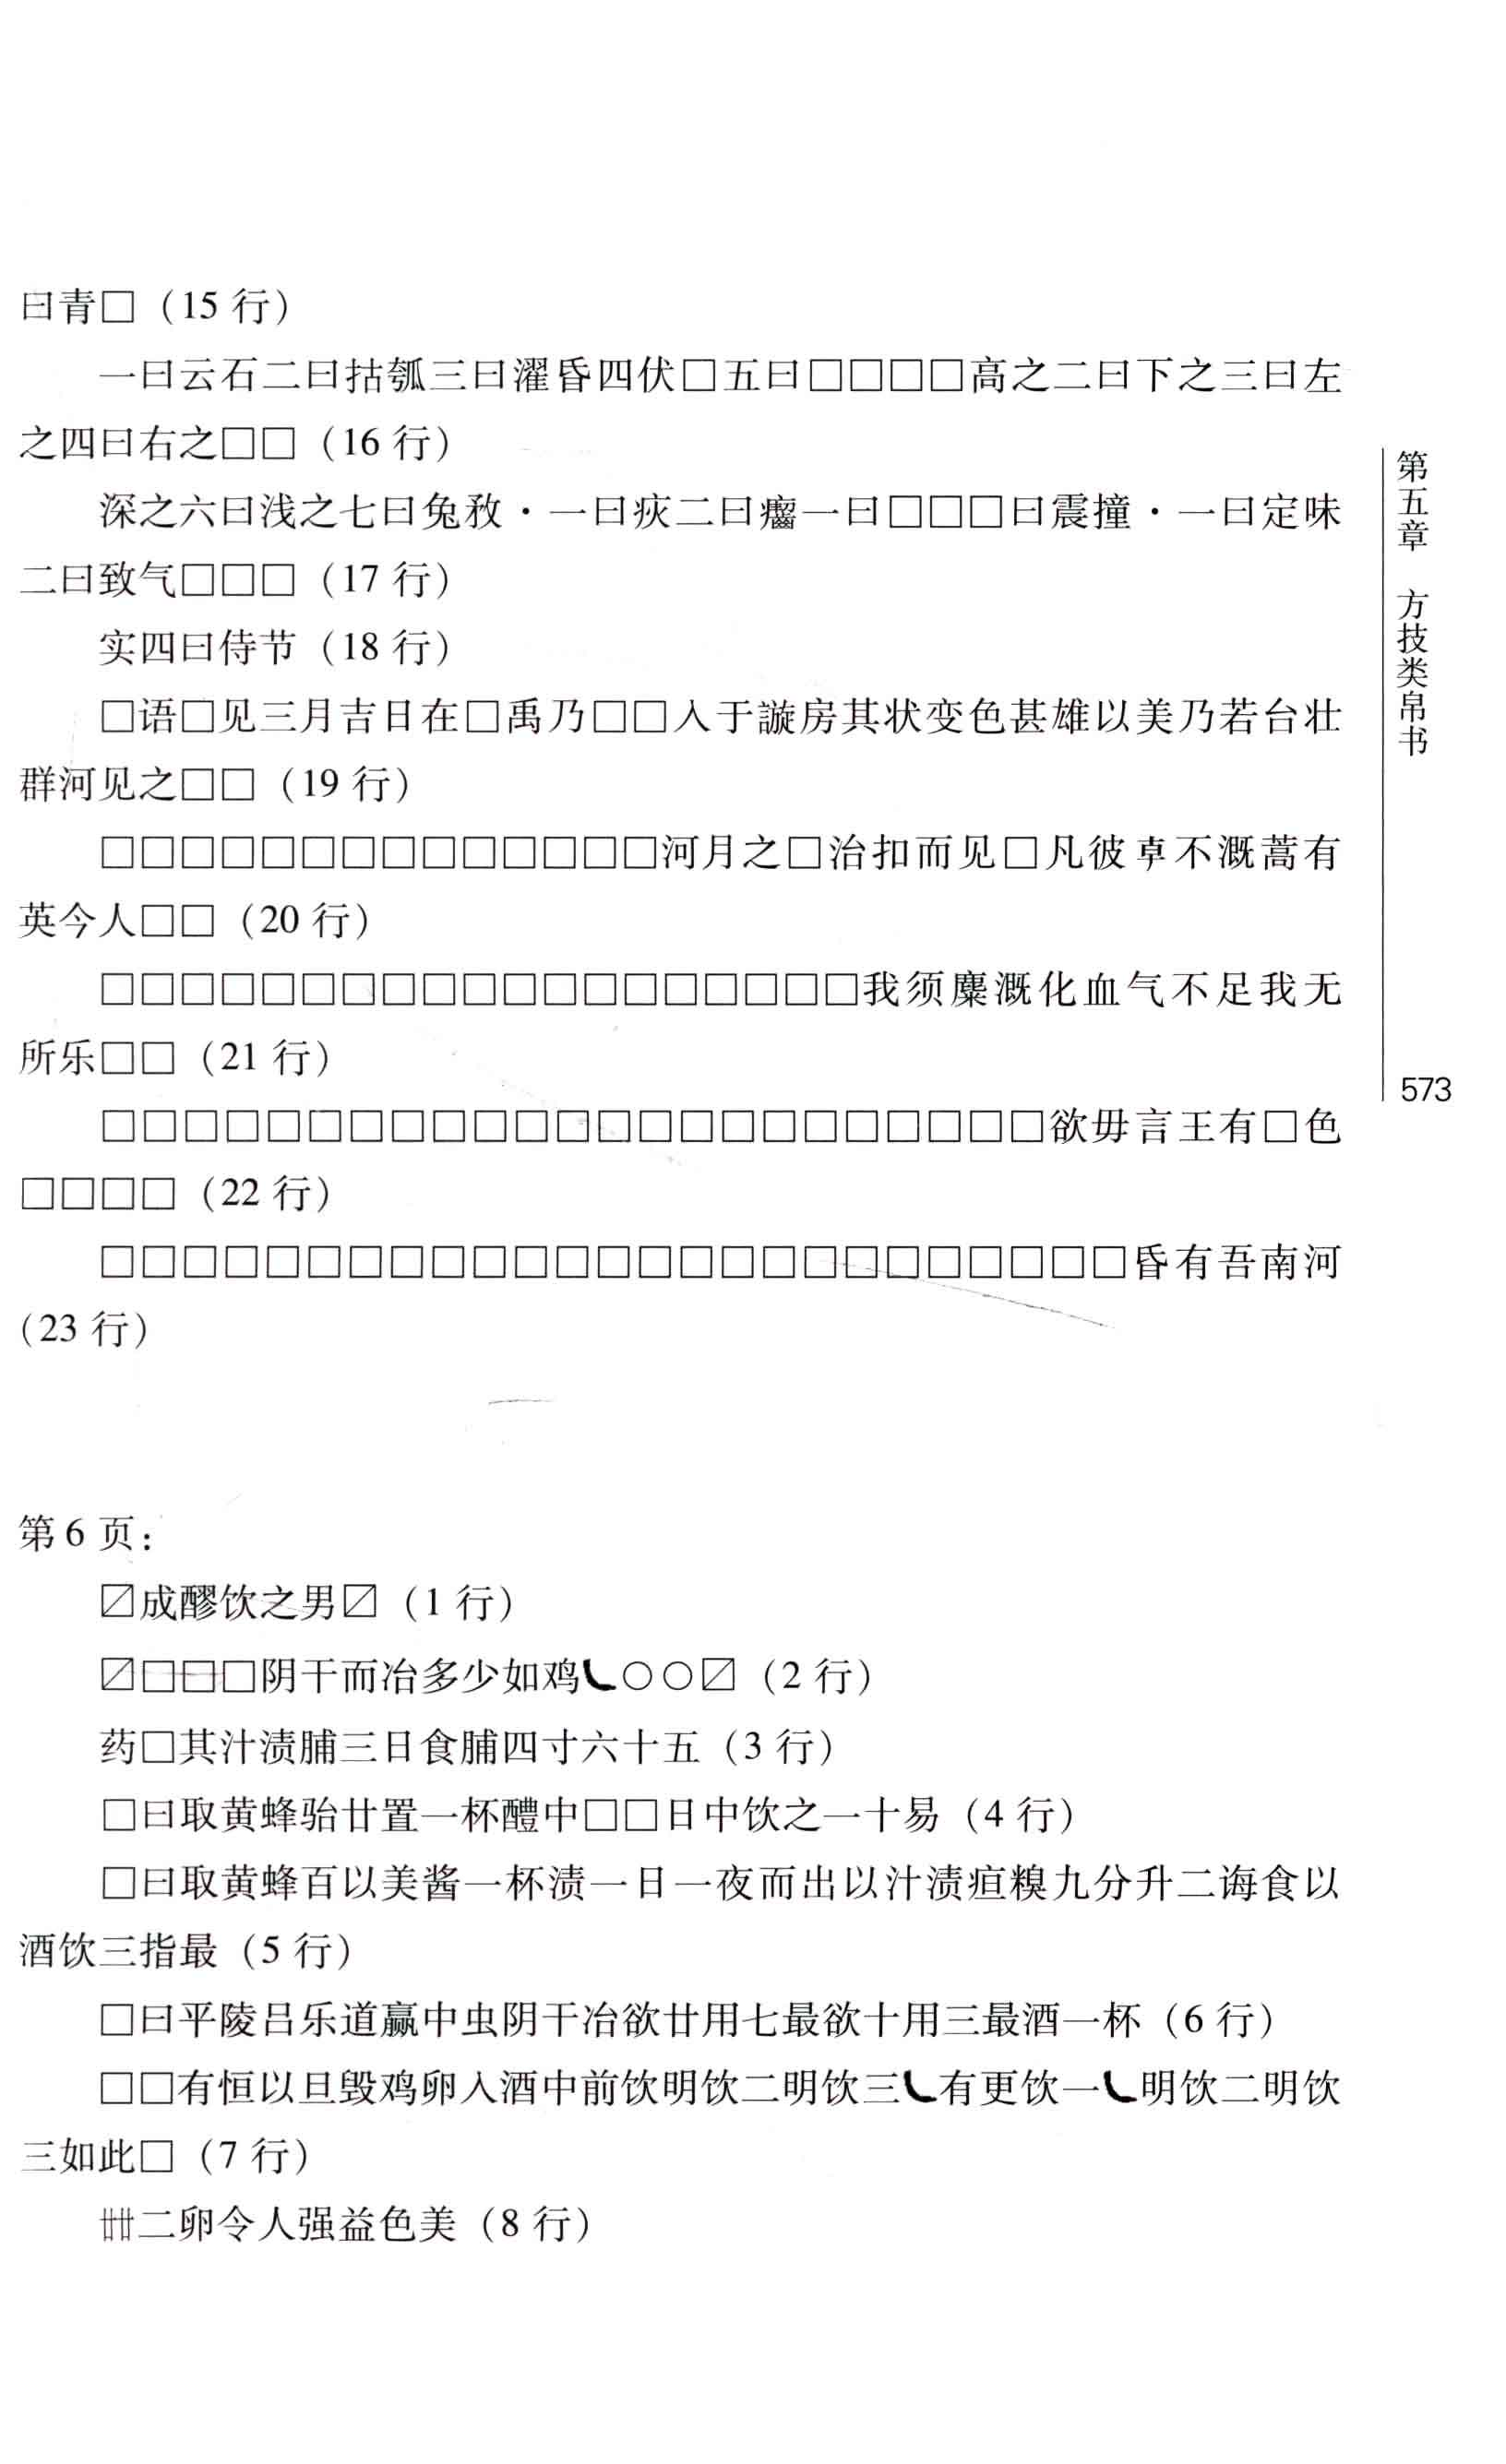 曰青□（15 行）
一曰云石二曰拈瓠三曰濯昏四伏□五曰□□□□高之二曰下之三曰左
之四曰右之□□（16 行）
深之六曰浅之七曰兔敄·一曰疢二曰㿊一曰□□□曰震撞·一曰定味
二曰致气□□□（17 行）
实四曰侍节（18 行）
□语□见三月吉日在□禹乃□□入于謸房其状变色甚雄以美乃若台壮
群河见之□□（19 行）
□□□□□□□□□□□□□□河月之□治扣而见□凡彼卓不溉蒿有
英今人□□（20 行）
□□□□□□□□□□□□□□□□□□□我须麋溉化血气不足我无
所乐□□（21 行）
□□□□□□□□□□□□□□□□□□□□□□□欲毋言王有□色
□□□□（22 行）
□□□□□□□□□□□□□□□□□□□□□□□□□昏有吾南河
（23 行）
第 6 页：
〼成醪饮之男〼（1 行）
〼□□□阴干而冶多少如鸡㇄○○〼（2 行）
药□其汁渍脯三日食脯四寸六十五（3 行）
□曰取黄蜂骀廿置一杯醴中□□日中饮之一十易（4 行）
□曰取黄蜂百以美酱一杯渍一日一夜而出以汁渍疸糗九分升二诲食以
酒饮三指最（5 行）
□曰平陵吕乐道赢中虫阴干冶欲廿用七最欲十用三最酒一杯（6 行）
□□有恒以旦毁鸡卵入酒中前饮明饮二明饮三㇄有更饮一㇄明饮二明饮
三如此□（7 行）
卌二卵令人强益色美（8 行）
第五章 方技类帛书
573